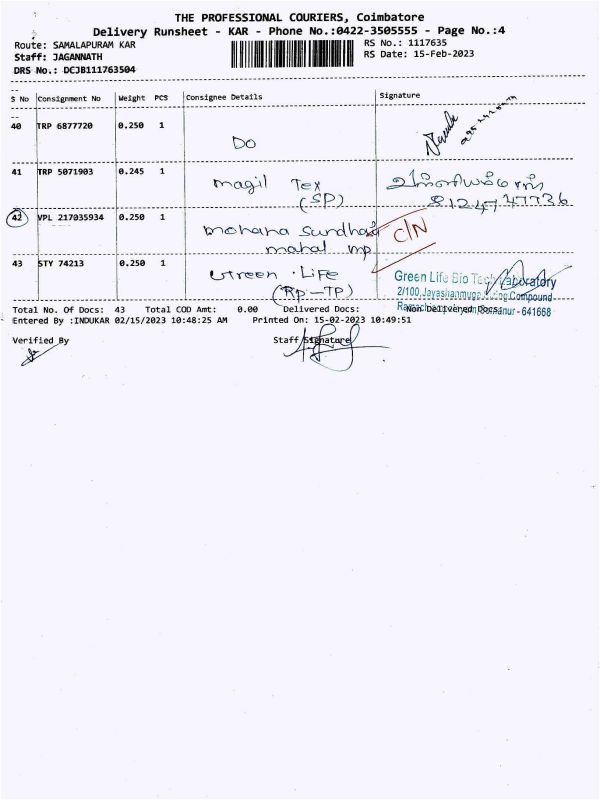 THE PROFESSIONAL COURIERS, Coimbatore
Delivery Runsheet - KAR - Phone No.:0422-3505555 - Page No.:4
Route: SAMALAPURAM KAR
RS No.: 1117635
Staff: JAGANNATH
RS Date: 15-Feb-2023
DRS No.: DCJB111763504
S No Consignment No Weight PCS Consignee Details Signature
40 TRP 6877720 0.250 1
Do
41 TRP 5071903 0.245 1
magil Tex
(SP)
8124747736
42 VPL 217035934 0.250 1
mohana Sundhara
mahal mp
C/N
43 STY 74213 0.250 1
Green Life
(RP-TP)
Green Life Bio Tech Laboratory
2/100, Jayashanmuga Compound
641668
Total No. Of Docs: 43 Total COD Amt: 0.00 Delivered Docs: Non Delivered Docs:
Entered By :INDUKAR 02/15/2023 10:48:25 AM Printed On: 15-02-2023 10:49:51
Verified By Staff Signature